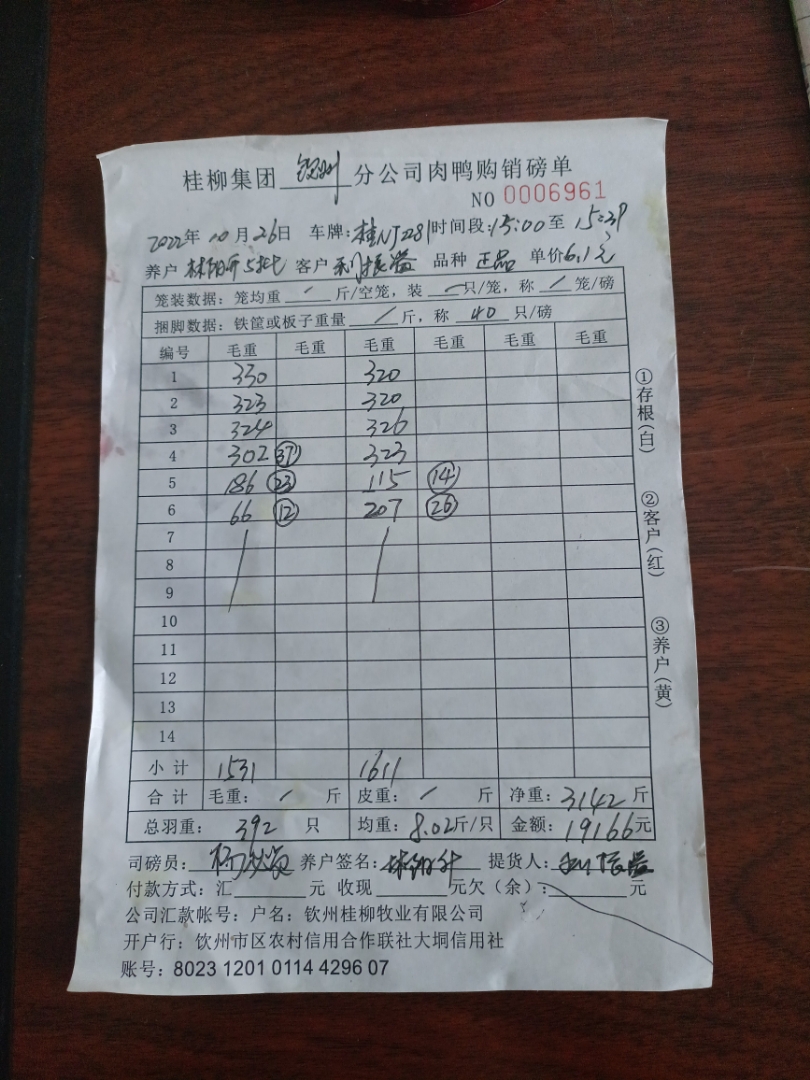 桂柳集团 钦州 分公司肉鸭购销磅单
NO 0006961
2022年 10月26日 车牌:桂NJ281 时间段:15:00至 15:39
养户 客户 品种 正品 单价6.1元
笼装数据:笼均重 / 斤/空笼,装 / 只/笼,称 / 笼/磅
捆脚数据:铁筐或板子重量 / 斤,称 40 只/磅
编号 毛重 毛重 毛重 毛重 毛重 毛重
1 330 320
2 323 320
3 324 326
4 302 37 323
5 186 23 115 14
6 66 12 207 26
7
8
9
10
11
12
13
14
小计 1531 1611
合计 毛重: / 斤 皮重: / 斤 净重:3142斤
总羽重: 392 只 均重:8.02斤/只 金额:19166元
司磅员: 养户签名: 提货人:
付款方式:汇 元 收现 元欠(余): 元
公司汇款帐号:户名:钦州桂柳牧业有限公司
开户行:钦州市区农村信用合作联社大垌信用社
账号:8023 1201 0114 4296 07
①存根(白)
②客户(红)
③养户(黄)